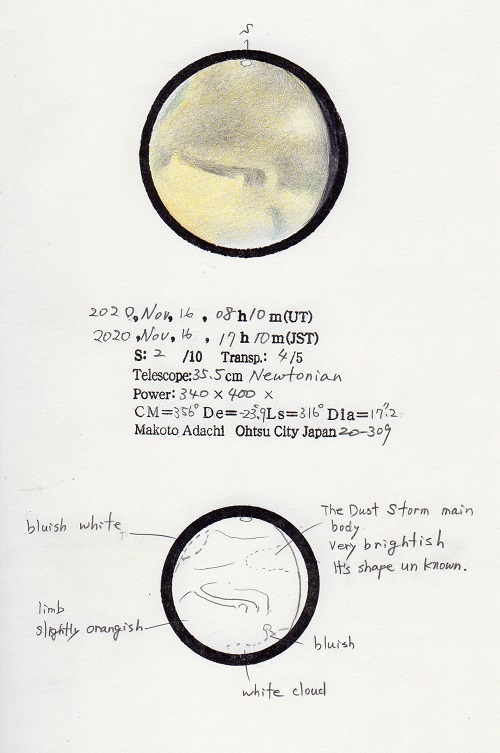 S
2020, Nov, 16, 08h10m(UT)
2020, Nov, 16, 17h10m(JST)
S: 2 /10 Transp.: 4/5
Telescope:35.5cm Newtonian
Power: 340 × 400 ×
CM=356° De=-23.°9 Ls=316° Dia=17."2
Makoto Adachi Ohtsu City Japan 20-309
The Dust Storm main
body
bluish white
Very brightish
It's shape un known.
limb
slightly orangish
bluish
white cloud